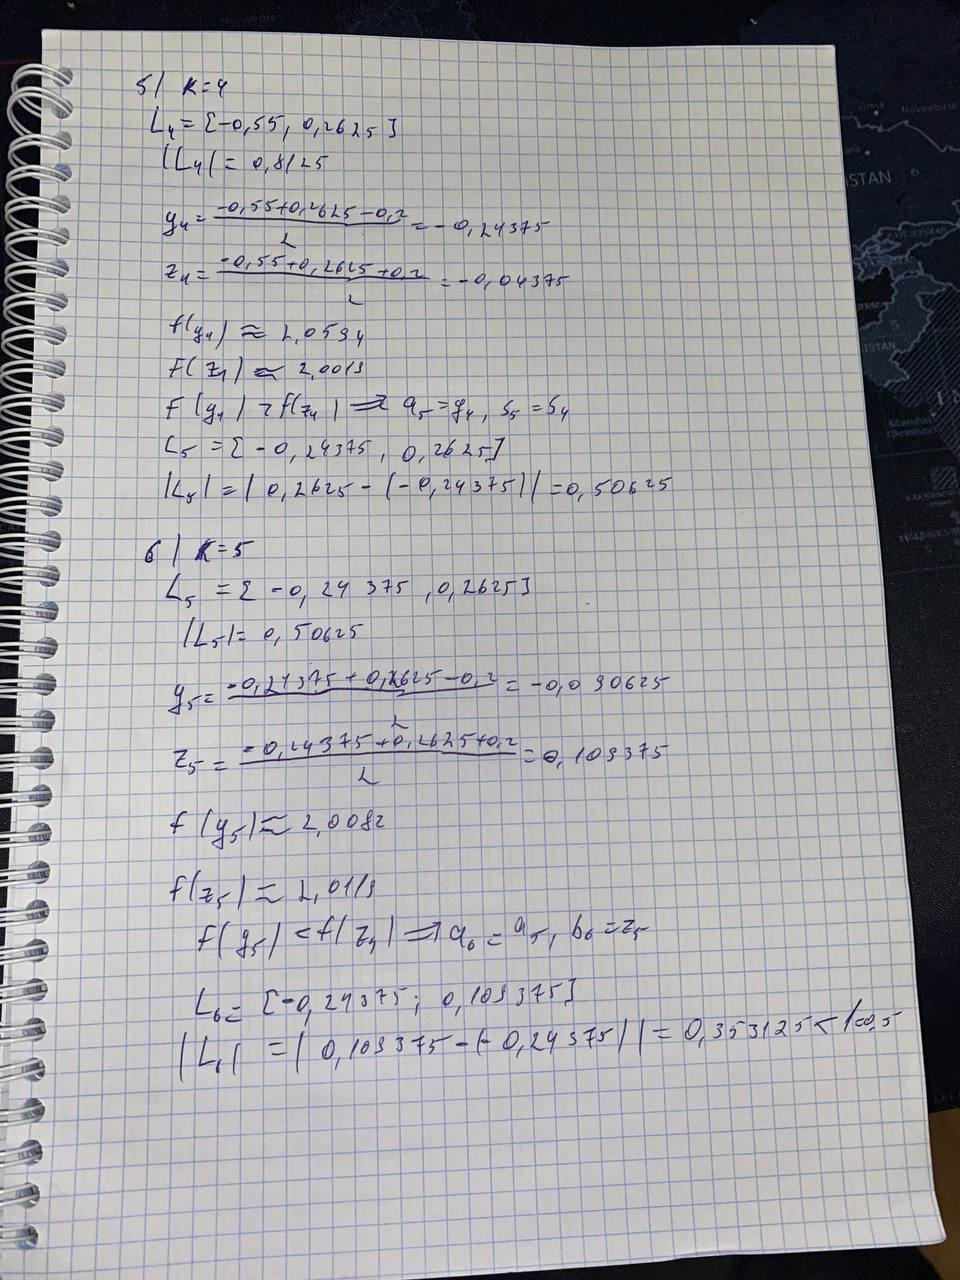 5) K=4
L₄ = [-0,55, 0,2625]
|L₄| = 0,8125
y₄ = (-0,55+0,2625-0,2)/2 = -0,24375
z₄ = (-0,55+0,2625+0,2)/2 = -0,04375
f(y₄) ≈ 2,0594
f(z₄) ≈ 2,0019
f(y₄) > f(z₄) ⇒ a₅ = y₄, b₅ = b₄
L₅ = [-0,24375, 0,2625]
|L₅| = |0,2625 - (-0,24375)| = 0,50625
6) K=5
L₅ = [-0,24375, 0,2625]
|L₅| = 0,50625
y₅ = (-0,24375+0,2625-0,2)/2 = -0,090625
z₅ = (-0,24375+0,2625+0,2)/2 = 0,109375
f(y₅) ≈ 2,0082
f(z₅) ≈ 2,0119
f(y₅) < f(z₅) ⇒ a₆ = a₅, b₆ = z₅
L₆ = [-0,24375; 0,109375]
|L₆| = |0,109375 - (-0,24375)| = 0,353125 < l=0,5
STAN
ISTAN